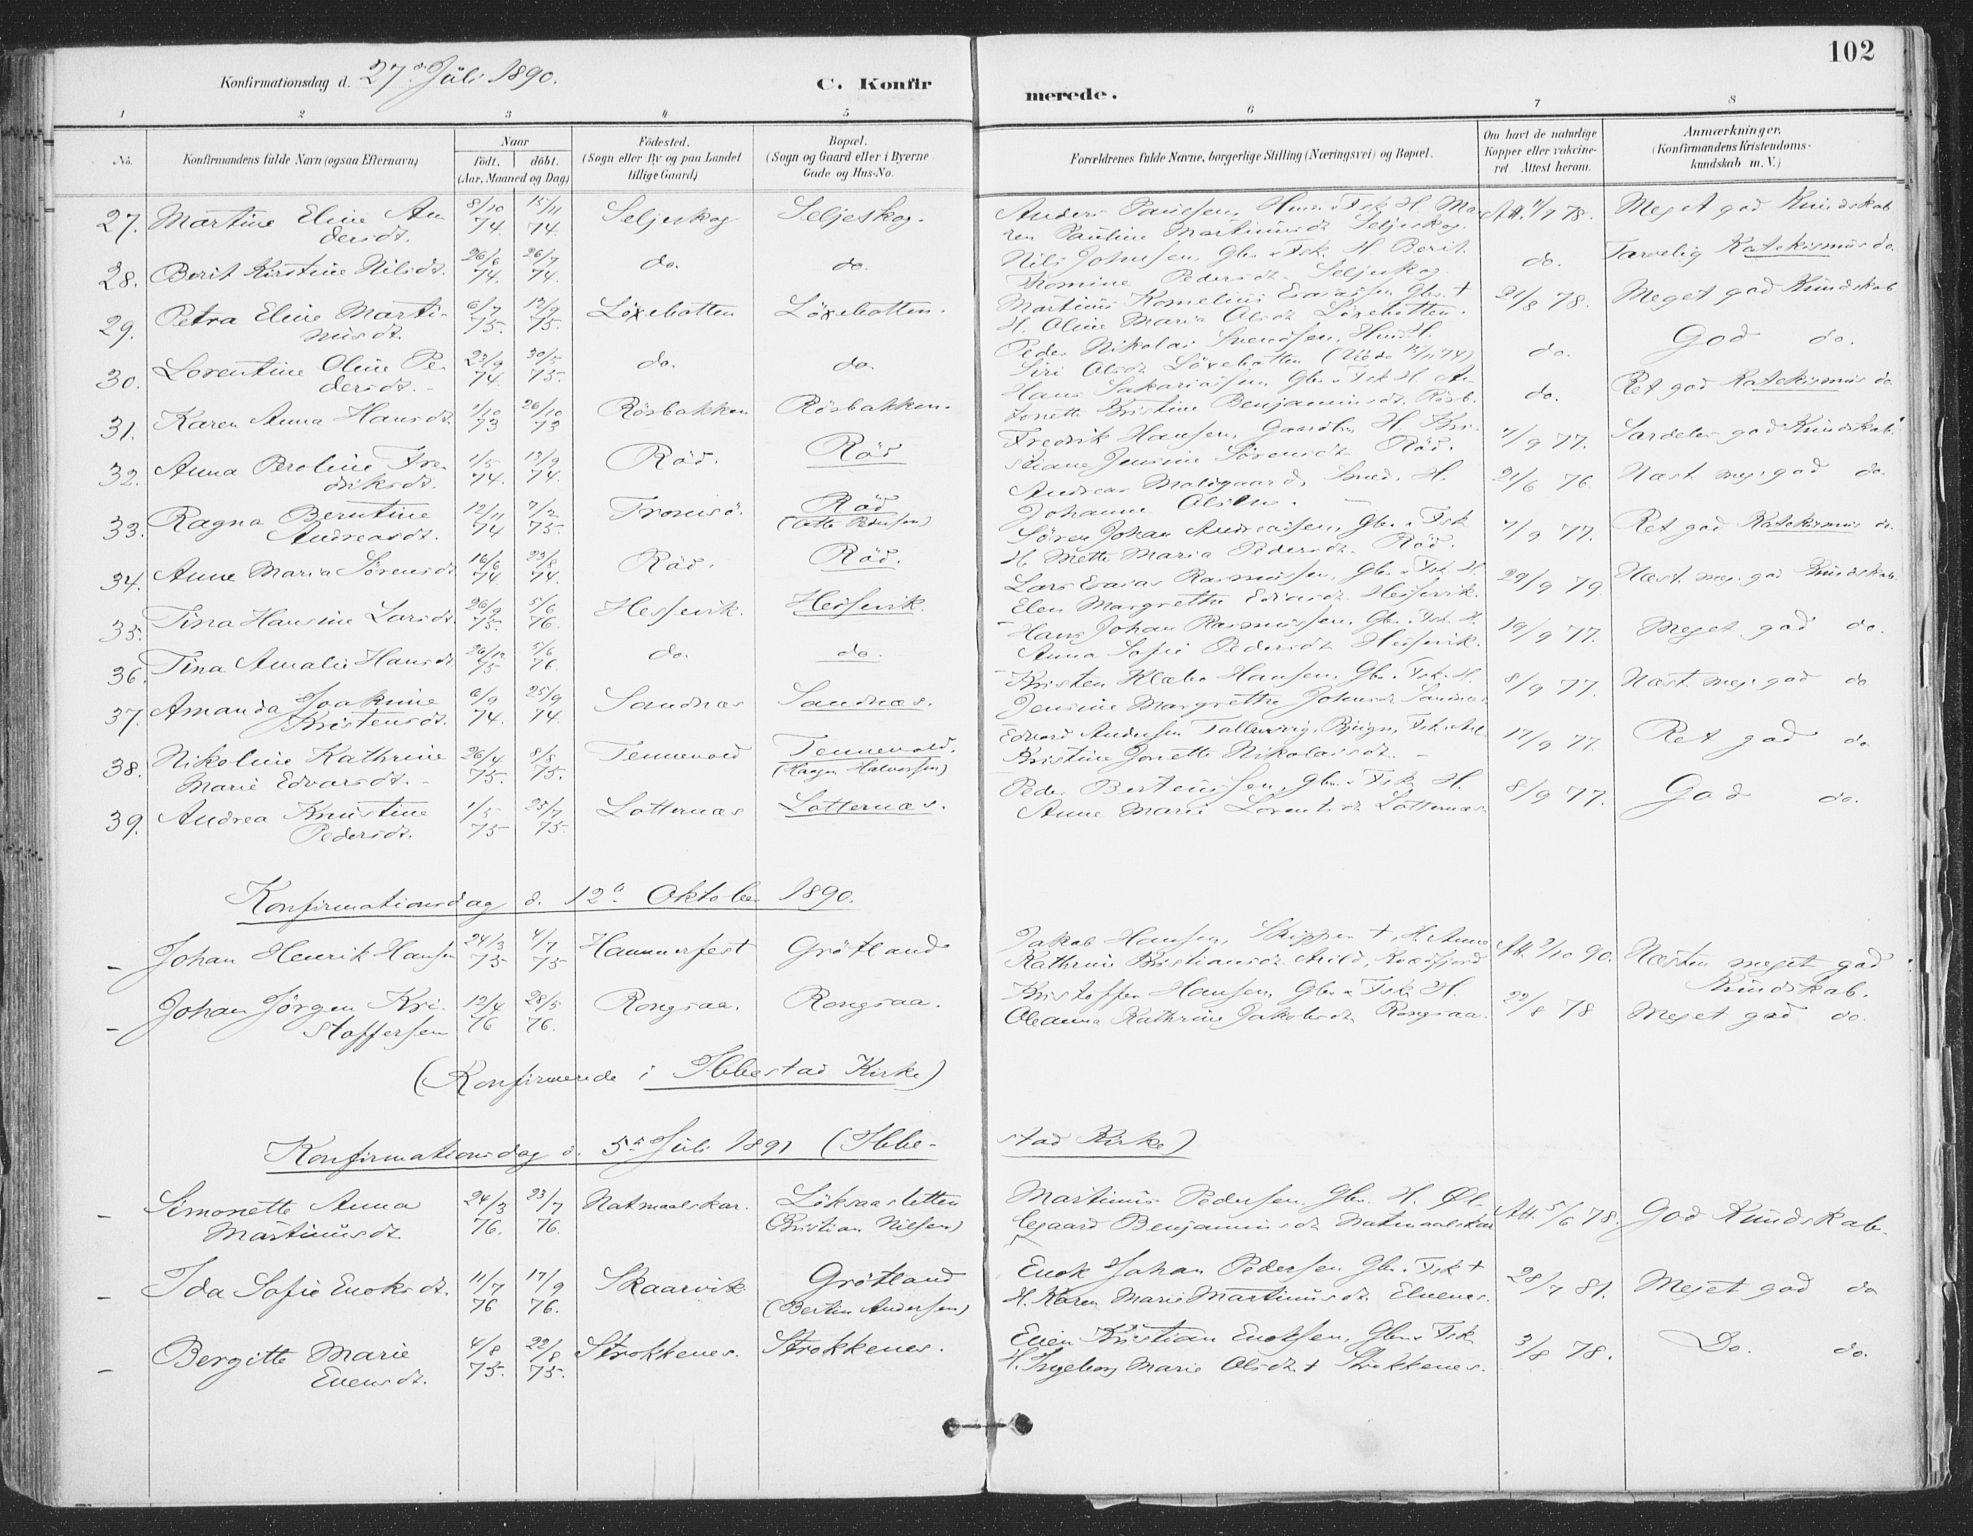 102
Konfirmationsdag d. 27de Juli 1890. C. Konfirmerede.
1 2 3 4 5 6 7 8
No. Konfirmandens fulde Navn (ogsaa Efternavn) Naar født. døbt. (Aar, Maaned og Dag) Fødested. (Sogn eller By og paa Landet tillige Gaard) Bopæl. (Sogn og Gaard eller i Byerne Gade og Hus-No. Forældrenes fulde Navne, borgerlige Stilling (Næringsvei) og Bopæl. Om havt de naturlige Kopper eller vakcineret Attest herom. Anmærkninger. (Konfirmandens Kristendomskundskab m. V.)
27. Martine Eline An- 8/10 74. 15/11 74. Seljeskog Seljeskog. Anders Paulsen, H. Ma- Att. 78. Meget god Kundskab
dersdt. ren Pauline Martinusdt Seljeskog.
28. Berit Kirstine Nilsdt. 26/6 74. 26/7 74. do. do. Nils Johnsen, Gbr. & Fsk. H. Berit do. Tarvelig Katekismus do.
Pedersdt. Seljeskog
29. Petra Eline Marti- 6/7 75. 12/9 75. Löxebotten Löxebotten. Martinus Kornelius Esaiasen Gbr. + 21/8 78. Meget god Kundskab
nusdt. H. Oline Maria Olsdt Löxebotten.
30. Lorentine Oline Pe- 23/9 74. 30/5 75. do. do. Peder Nikolai Svendsen, H. do. God do.
dersdt. Siri Olsdt Löxebotten
31. Karen Anna Hansdt. 1/10 73 26/10 73 Rösbakken Rösbakken. Hans Sakariassen, Gbr. & Fsk. H. A- do. Ret god Katekismus do
nette Kristine Benjaminsdt. Rösb.
32. Anna Peroline Fre- 1/5 74. 13/9 74. Röd. Röd Fredrik Hansen, Gaardbr. H. Kri- 7/9 77. Særdeles god Kundskab.
driksdt. stiane Jensine Sörensdt Röd.
33. Ragna Berntine 12/11 74 7/2 75. Tromsö. Röd Andreas Maldgaard, Smed, H. 21/6 76. Næst. meg. god do.
Andreasdt. (Otte Pedersen) Johanna Olsdn.
34. Anne Maria Sörensdt. 16/6 74 23/8 74. Röd. Röd. Sören Johan Andreassen, Gbr. & Fsk. 7/9 77. Ret god Katekismus do.
H. Mette Maria Pedersdt. Röd.
35. Tina Hansine Larsdt. 26/9 75. 5/6 76. Hessevik. Hessevik. Lars Esaias Rasmussen, Gbr. & Fsk. H. 22/9 79. Næst. meg. god Kundskab
Elen Margrethe Hessevik.
36. Tina Amalie Hansdt 26/12 75 5/6 76. do. do. Hans Johan Rasmussen, Gbr. & Fsk. H. 19/9 77. Meget god do.
Anna Sofie Pedersdt Hessevik.
37. Amanda Joakime 6/9 74. 25/9 74. Sandnæs Sandnæs. Kristen Klæbo Hansen, Gbr. & Fsk. H. 8/9 77. Næst. meg. god do
Kristensdt. Jensine Margrethe Johnsdt Sandnæs
38. Nikoline Kathrine 26/4 75. 8/8 75. Tennevold Tennevold. Edvard Andersen Bjugn, Fsk. 17/9 77. Ret god do
Marie Edvardsdt. (Haagen Halvorsen) Kristine Jonette Nikolaisdt.
39. Andrea Knustine 1/5 75 25/7 75 Lotternæs Lotternæs. Peder Berteussen, Gbr. & Fsk. H. 8/9 77. God do.
Pedersdt. Anne Marie Lorentsdt Lotternæs
Konfirmationsdag d. 12te Oktober 1890.
– Johan Henrik Hansen 24/3 75 4/7 75 Hammerfest Grötland Jakob Hansen, Skipper +, H. Anne Att. 9/10 90. Næsten meget god
Kathrine Kristiansdt Kvædfjord Kundskab.
– Johan Jörgen Kri- 12/4 76 28/5 76. Rongsaa. Rongsaa. Kristoffer Hansen, Gbr. & Fsk. H. 22/8 78 Meget god do.
stoffersen Oleanna Kathrine Jakobsdt Rongsaa.
(Konfirmerede i Ibbestad Kirke)
Konfirmationsdag d. 5te Juli 1891 (Ibbe- stad Kirke)
– Simonette Anna 24/3 76. 23/7 76. Natmaalskar. Löksaasletten Martinus Pedersen Gbr. H. Øl- Att. 5/6 78. God Kundskab.
Martinusdt (Kristian Nilsen) legaard Benjaminsdt Natmaalskar
– Ida Sofie Enoksdt. 11/7 76 17/9 76. Skaarvik Grötland Enok Johan Pedersen Gbr. & Fsk + 28/7 81. Meget god do
(Bertin Andersen) H. Karen Marie Martinusdt. Elvenes.
– Bergitte Marie 4/8 75. 22/8 75. Strokkenes. Strokkenes. Even Kristian Enoksen, Gbr. & Fsk. 3/8 78. Do. do.
Evensdt. H. Ingeborg Marie Olsdt + Strokkenes.